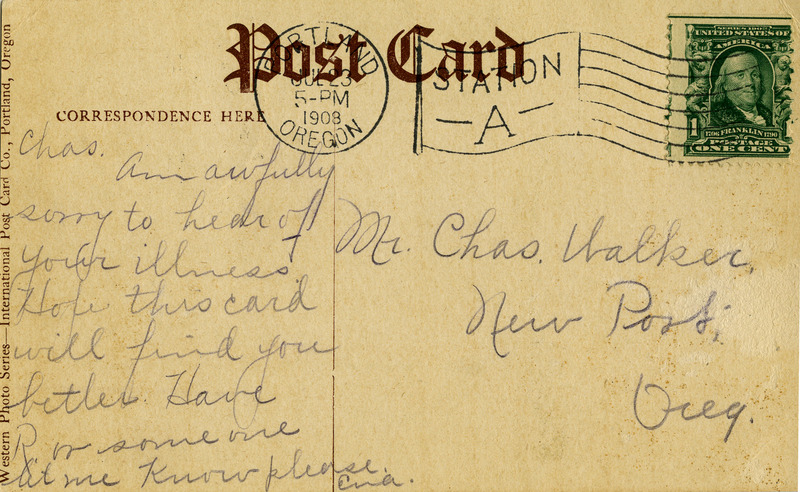 Post Card
CORRESPONDENCE HERE
PORTLAND
JUL 23
5-PM
1908
OREGON
STATION
A
SERIES 1902
UNITED STATES OF
AMERICA
1
1706 FRANKLIN 1790
POSTAGE
ONE CENT
Western Photo Series—International Post Card Co., Portland, Oregon
Chas.
Am awfully
sorry to hear of
your illness
Hope this card
will find you
better. Have
R or some one
let me know please.
Mr. Chas. Walker,
New Post,
Oreg.